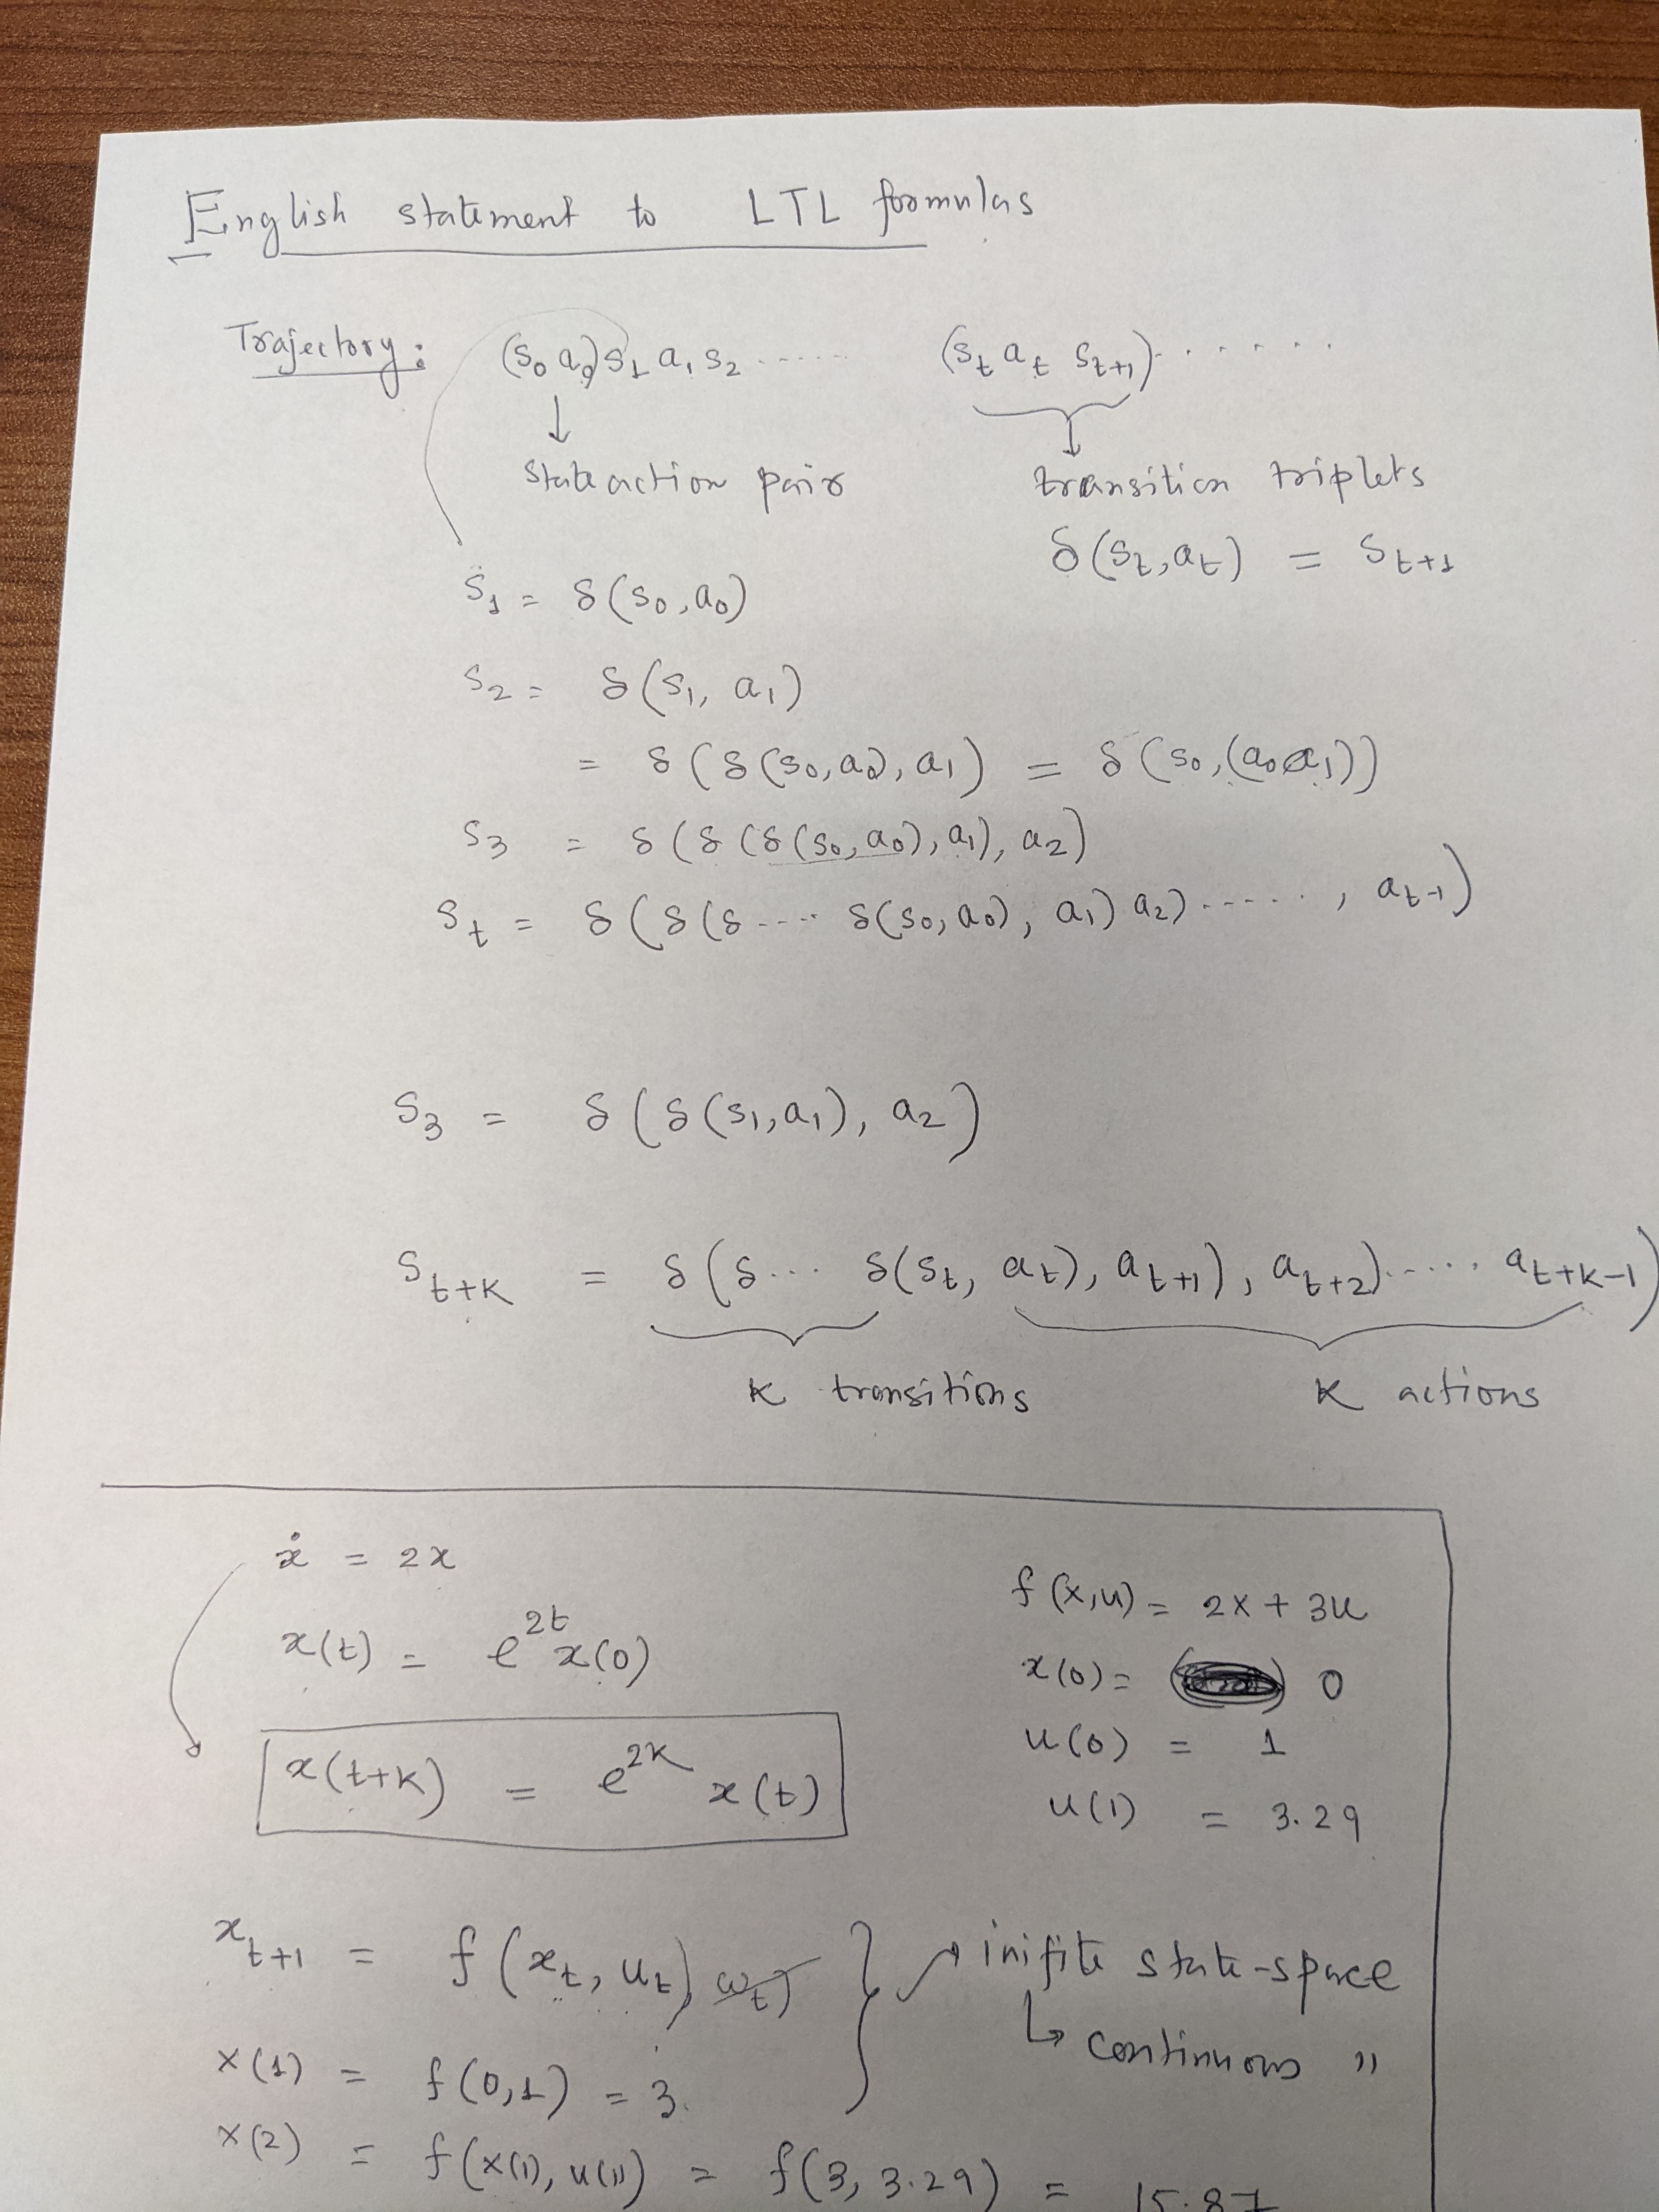 English statement to LTL formulas
Trajectory: (s₀ a₀) s₁ a₁ s₂ ...... (s_t a_t s_{t+1}) ......
↓ ↓
state action pair transition triplets
δ(s_t, a_t) = s_{t+1}
s₁ = δ(s₀, a₀)
s₂ = δ(s₁, a₁)
= δ(δ(s₀, a₀), a₁) = δ(s₀, (a₀a₁))
s₃ = δ(δ(δ(s₀, a₀), a₁), a₂)
s_t = δ(δ(δ .... δ(s₀, a₀), a₁) a₂) ......, a_{t-1})
s₃ = δ(δ(s₁, a₁), a₂)
s_{t+K} = δ(δ... δ(s_t, a_t), a_{t+1}), a_{t+2}) ..... a_{t+K-1})
K transitions K actions
ẋ = 2x
f(x,u) = 2x + 3u
x(t) = e^{2t} x(0)
x(0) = 0
u(0) = 1
x(t+K) = e^{2K} x(t)
u(1) = 3.29
x_{t+1} = f(x_t, u_t) w_t) } → inifite state-space
↳ continuous "
x(1) = f(0,1) = 3.
x(2) = f(x(1), u(1)) = f(3, 3.29) = 15.87